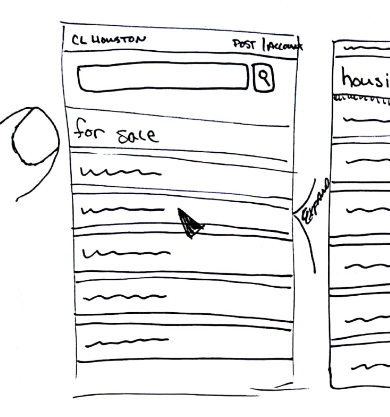 CL HOUSTON
POST | Account
for sale
Expand
housi